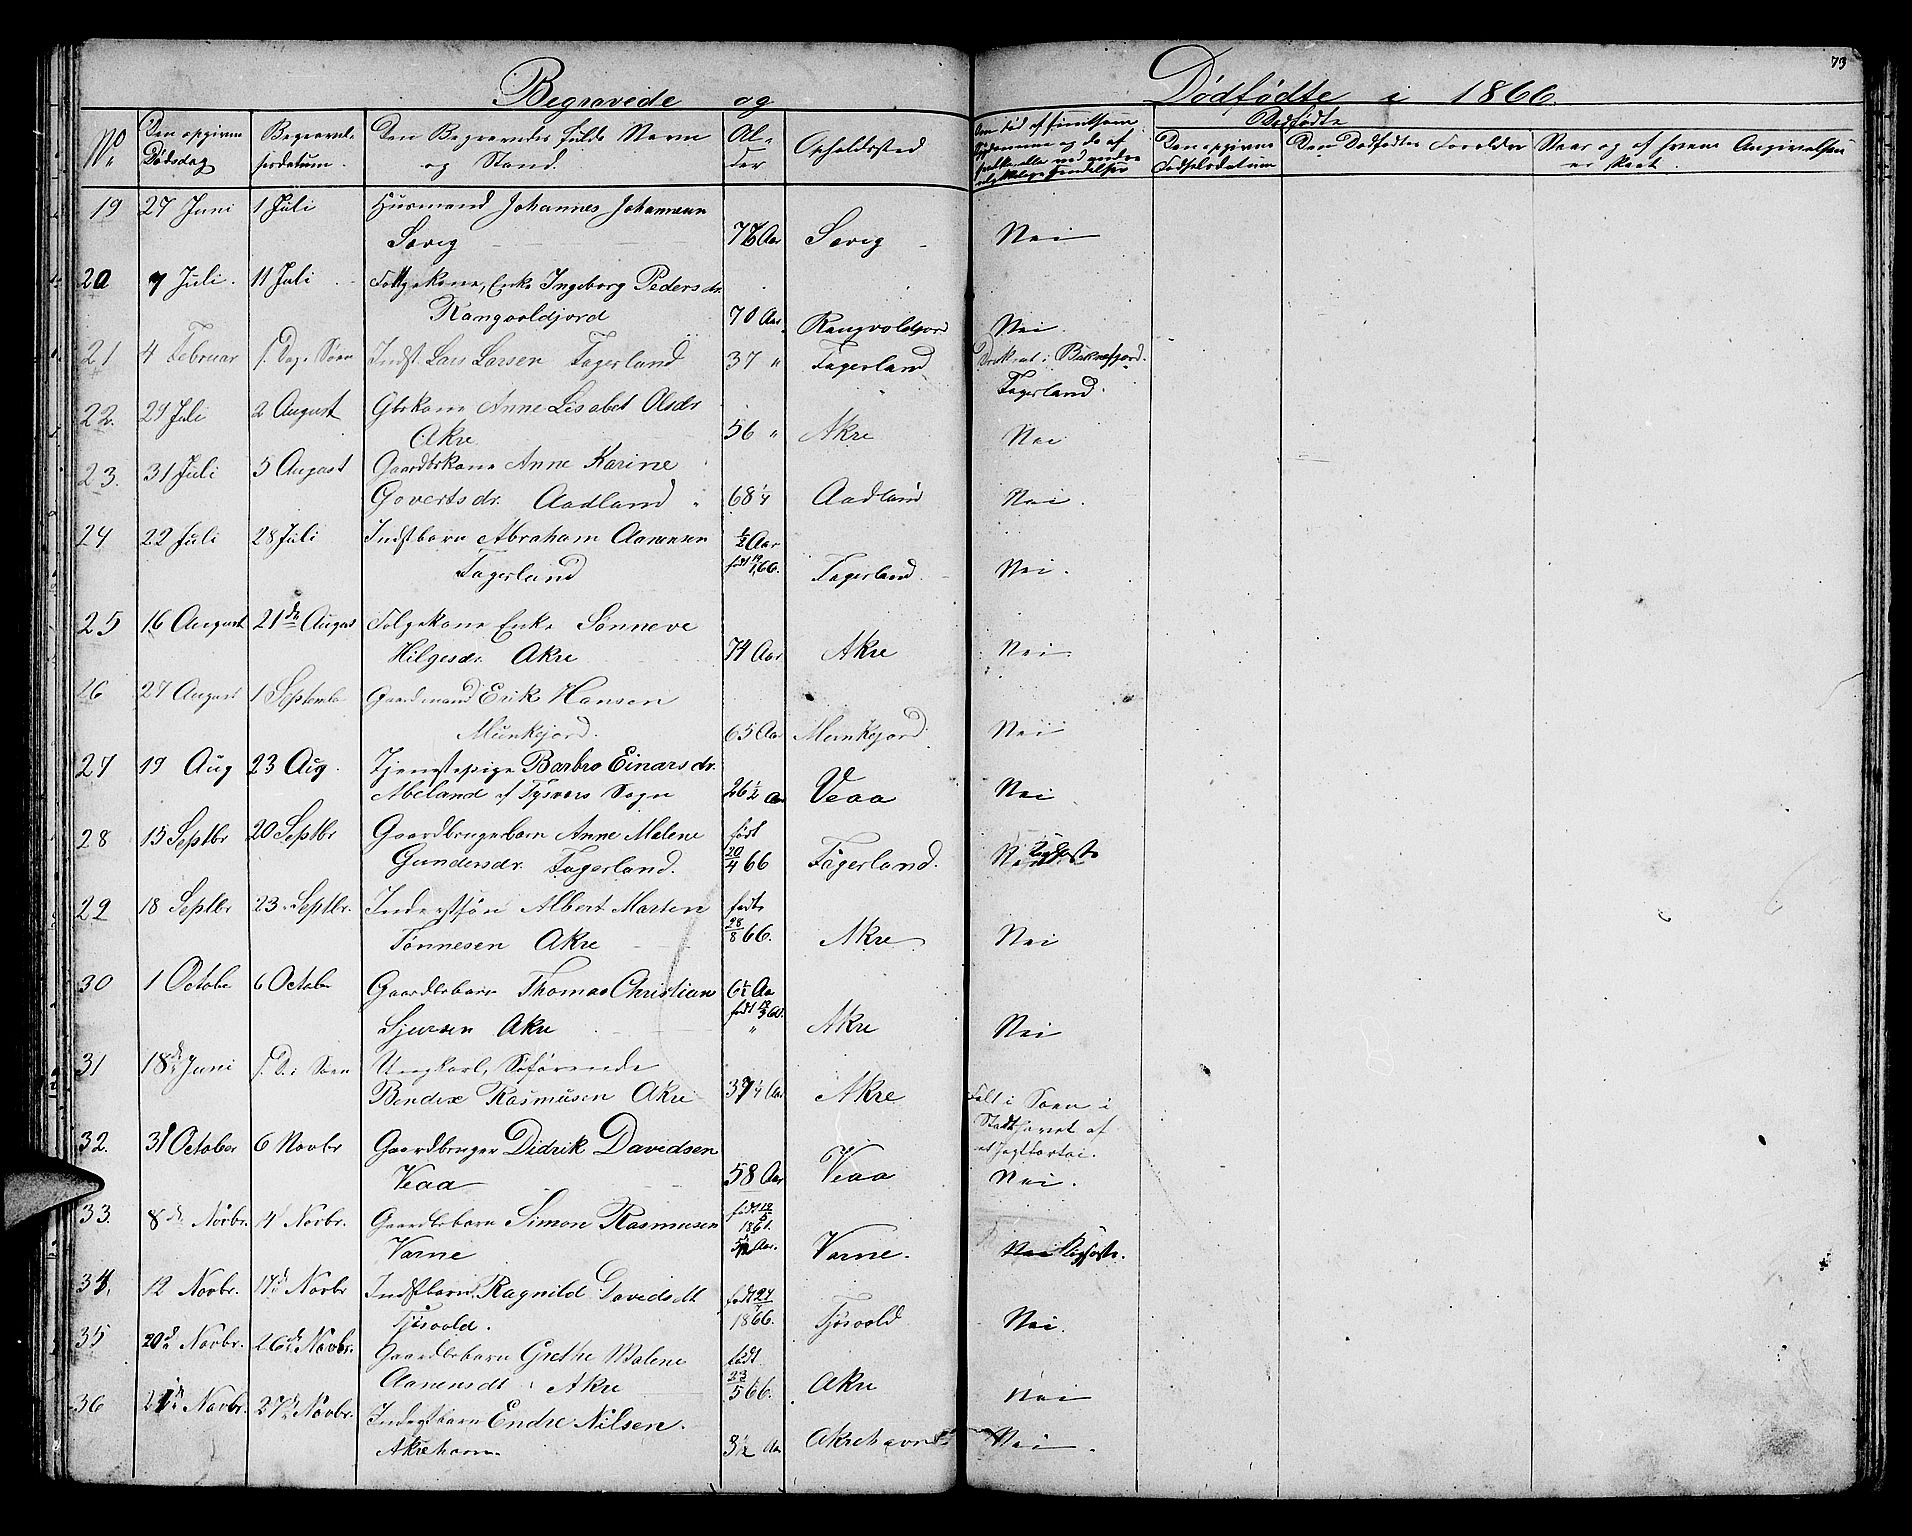 Begravede og Dødfødte i 1866.
73
No
Den opgivne Dødsdag
Begravel-
sesdatum.
Den Begravedes fulde Navn
og Stand.
Al-
der
Opholdssted
Dødfødte
Den opgivne
Fødselsdatum
Den Dødfødtes Forældre
Naar og af hvem Angivelsen
er skeet.
19 27 Juni 1 Juli Husmand Johannes Johannesen
Sævig 76 Aar Sævig Nei
20 7 Juli. 11 Juli Følgekone, Enke Ingeborg Pedersdr.
Rangvoldjord 70 Aar Rangvoldjord Nei.
21 4 Februar Indst. Lars Larsen Fagerland 37 " Fagerland Druknet i Buknefjord.
Fagerland.
22. 29 Juli 2 August Gbrkone Anne Lisabet Olsdr
Akre 56 " Akre Nei
23. 31 Juli 5 August Gaardbrkone Anne Karine
Govertsdr. Aadland 68 1/4 Aadland Nei.
24 22 Juli 28 Juli Indstbarn Abraham Aanensen
Fagerland 1/2 Aar Fagerland. Nei.
25 16 August 21de August Følgekone Enke Sønneve
Hilgesdr. Akre 74 Aar Akre Nei.
26 27 August 1 Septembr Gaardmand Erik Hansen
Munkejord. 65 Aar Munkejord Nei
27 19 Aug 23 Aug. Tjenestepige Barbro Einarsdr.
Abeland af Tysvær Sogn 26 1/2 Aar Veaa Nei
28 15 Septbr 20 Septbr Gaardbrugerbarn Anne Malene
Gundersdr. Fagerland. født
20/4 66 Fagerland. Kighoste
29 18 Septbr 23. Septbr. Inderstsøn Albert Martin
Tønnesen Akre født
28/8 66. Akre Nei
30 1 Octobr 6 Octobr Gaardbrbarn Thomas Christian
Sjursen Akre 6 1/2 Aar Akre Nei
31 18de Juni Ungkarl, Søfarende
Bendix Rasmusen Akre 37 1/4 Aar Akre Falt i Søen i
Stadthavet af
et Jagtfartøi.
32. 31 October 6 Novbr Gaardbruger Didrik Davidsen
Veaa 58 Aar Veaa Nei.
33. 8de Novbr. 14 Novbr. Gaardbrbarn Simon Rasmusen
Varne 1861. Varne. Nei Kighoste.
34. 12 Novbr. 17de Novbr Indstbarn Ragnild Davidsdt
Tjøsvold. 1866. Tjøsvold Nei.
35 20de Novbr. 26de Novbr. Gaardbrbarn Grethe Malene
Aanensdt Akre født
23/5 66. Akre Nei
36 21de Novbr. 27de Novbr. Inderstbarn Endre Nilsen.
Akrehavn. 3 1/2 Aar Akrehavn Nei.